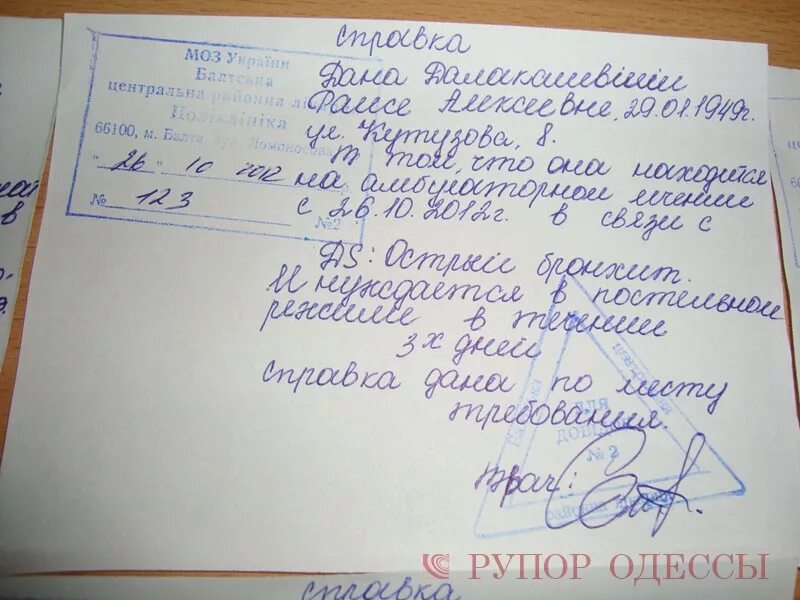 справка
МОЗ України
Балтська
центральна районна
Поліклініка
66100, м. Балта, вул. Ломоносова
"26" 10 2012
№ 123
№2
Дана
Раисе Алексеевне, 29.01.1949г.
ул. Кутузова, 8.
В том, что она находится
на амбулаторном лечении
с 26.10.2012г. в связи с
DS: Острый бронхит.
И нуждается в постельном
режиме в течении
3х дней
справка дана по месту
требования.
врач:
ДЛЯ
ДОВІДОК
№ 2
РУПОР ОДЕССЫ
справка